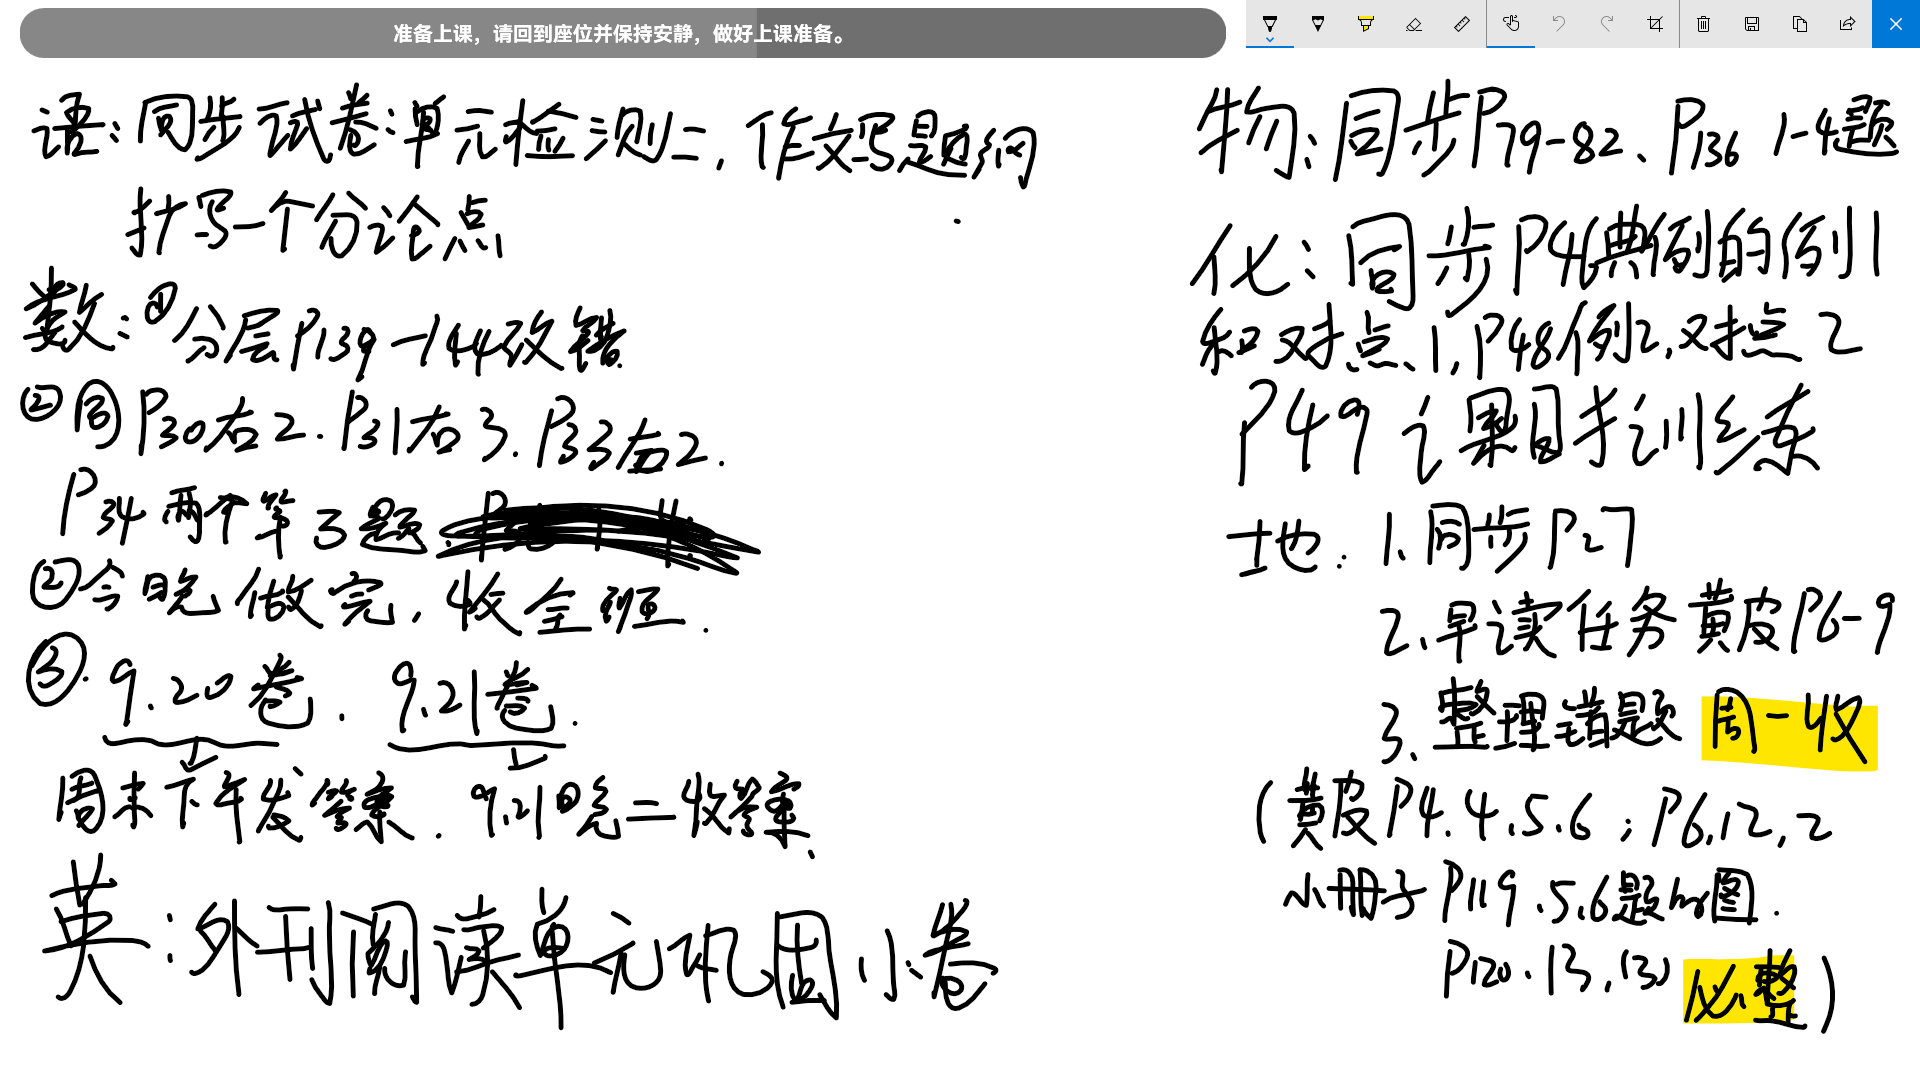 准备上课，请回到座位并保持安静，做好上课准备。
语：同步试卷：单元检测二，作文写题纲
抄写一个分论点
数：①分层P139-144改错
②同P30右2．P31右3．P33右2．
P34两个第3题
②今晚做完，收全班．
③．9.20卷．9.21卷．
周末下午发答案．9.21日晚二收答案、
英：外刊阅读单元巩固小卷
物：同步P79-82、P136 1-4题
化：同步P46典例的例1
和对点、1，P48例2，对点2
P49 课目标训练
地．1、同步P27
2、早读任务黄皮P6-9
3、整理错题 周一收
（黄皮P4．4，5．6；P6，12，2
小册子P119．5，6题的图．
P120．13，（3）必整）